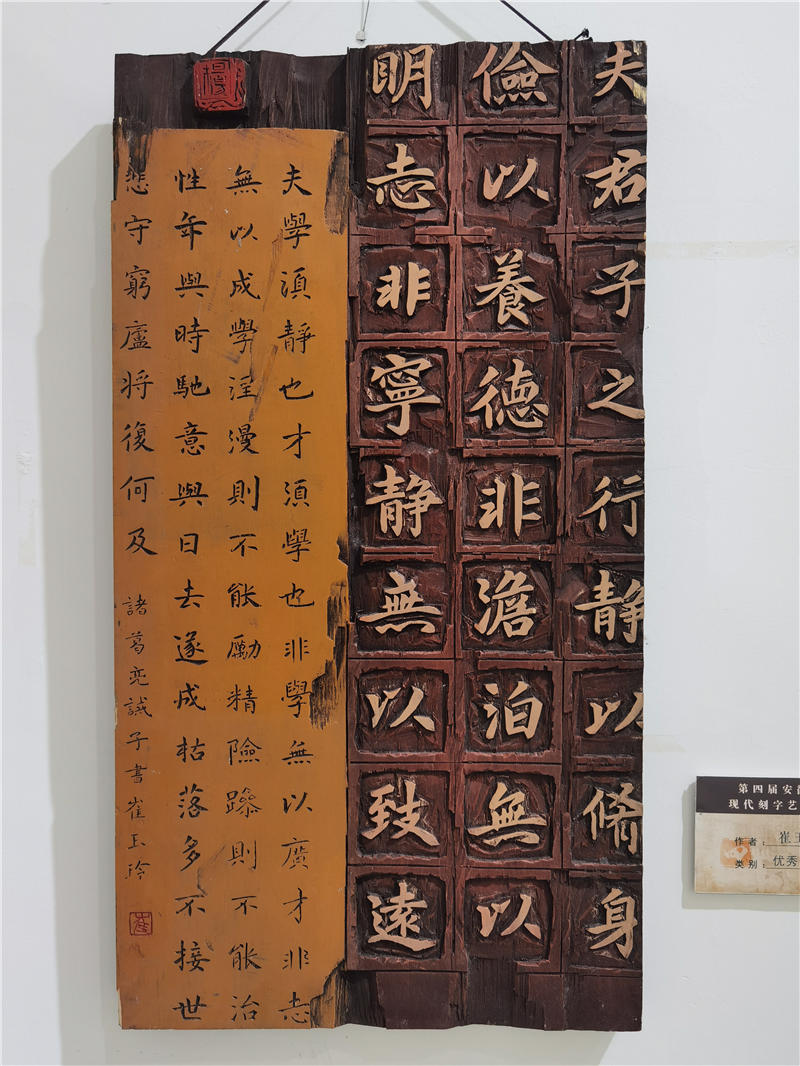 夫君子之行静以脩身
儉以養德非澹泊無以
明志非寧静無以致遠
夫學須靜也才須學也非學無以廣才非志
無以成學淫漫則不能勵精險躁則不能治
性年與時馳意與日去遂成枯落多不接世
悲守窮廬将復何及 諸葛亮誡子書崔玉玲
崔
第四届安
现代刻字艺
作者：崔
类别：优秀